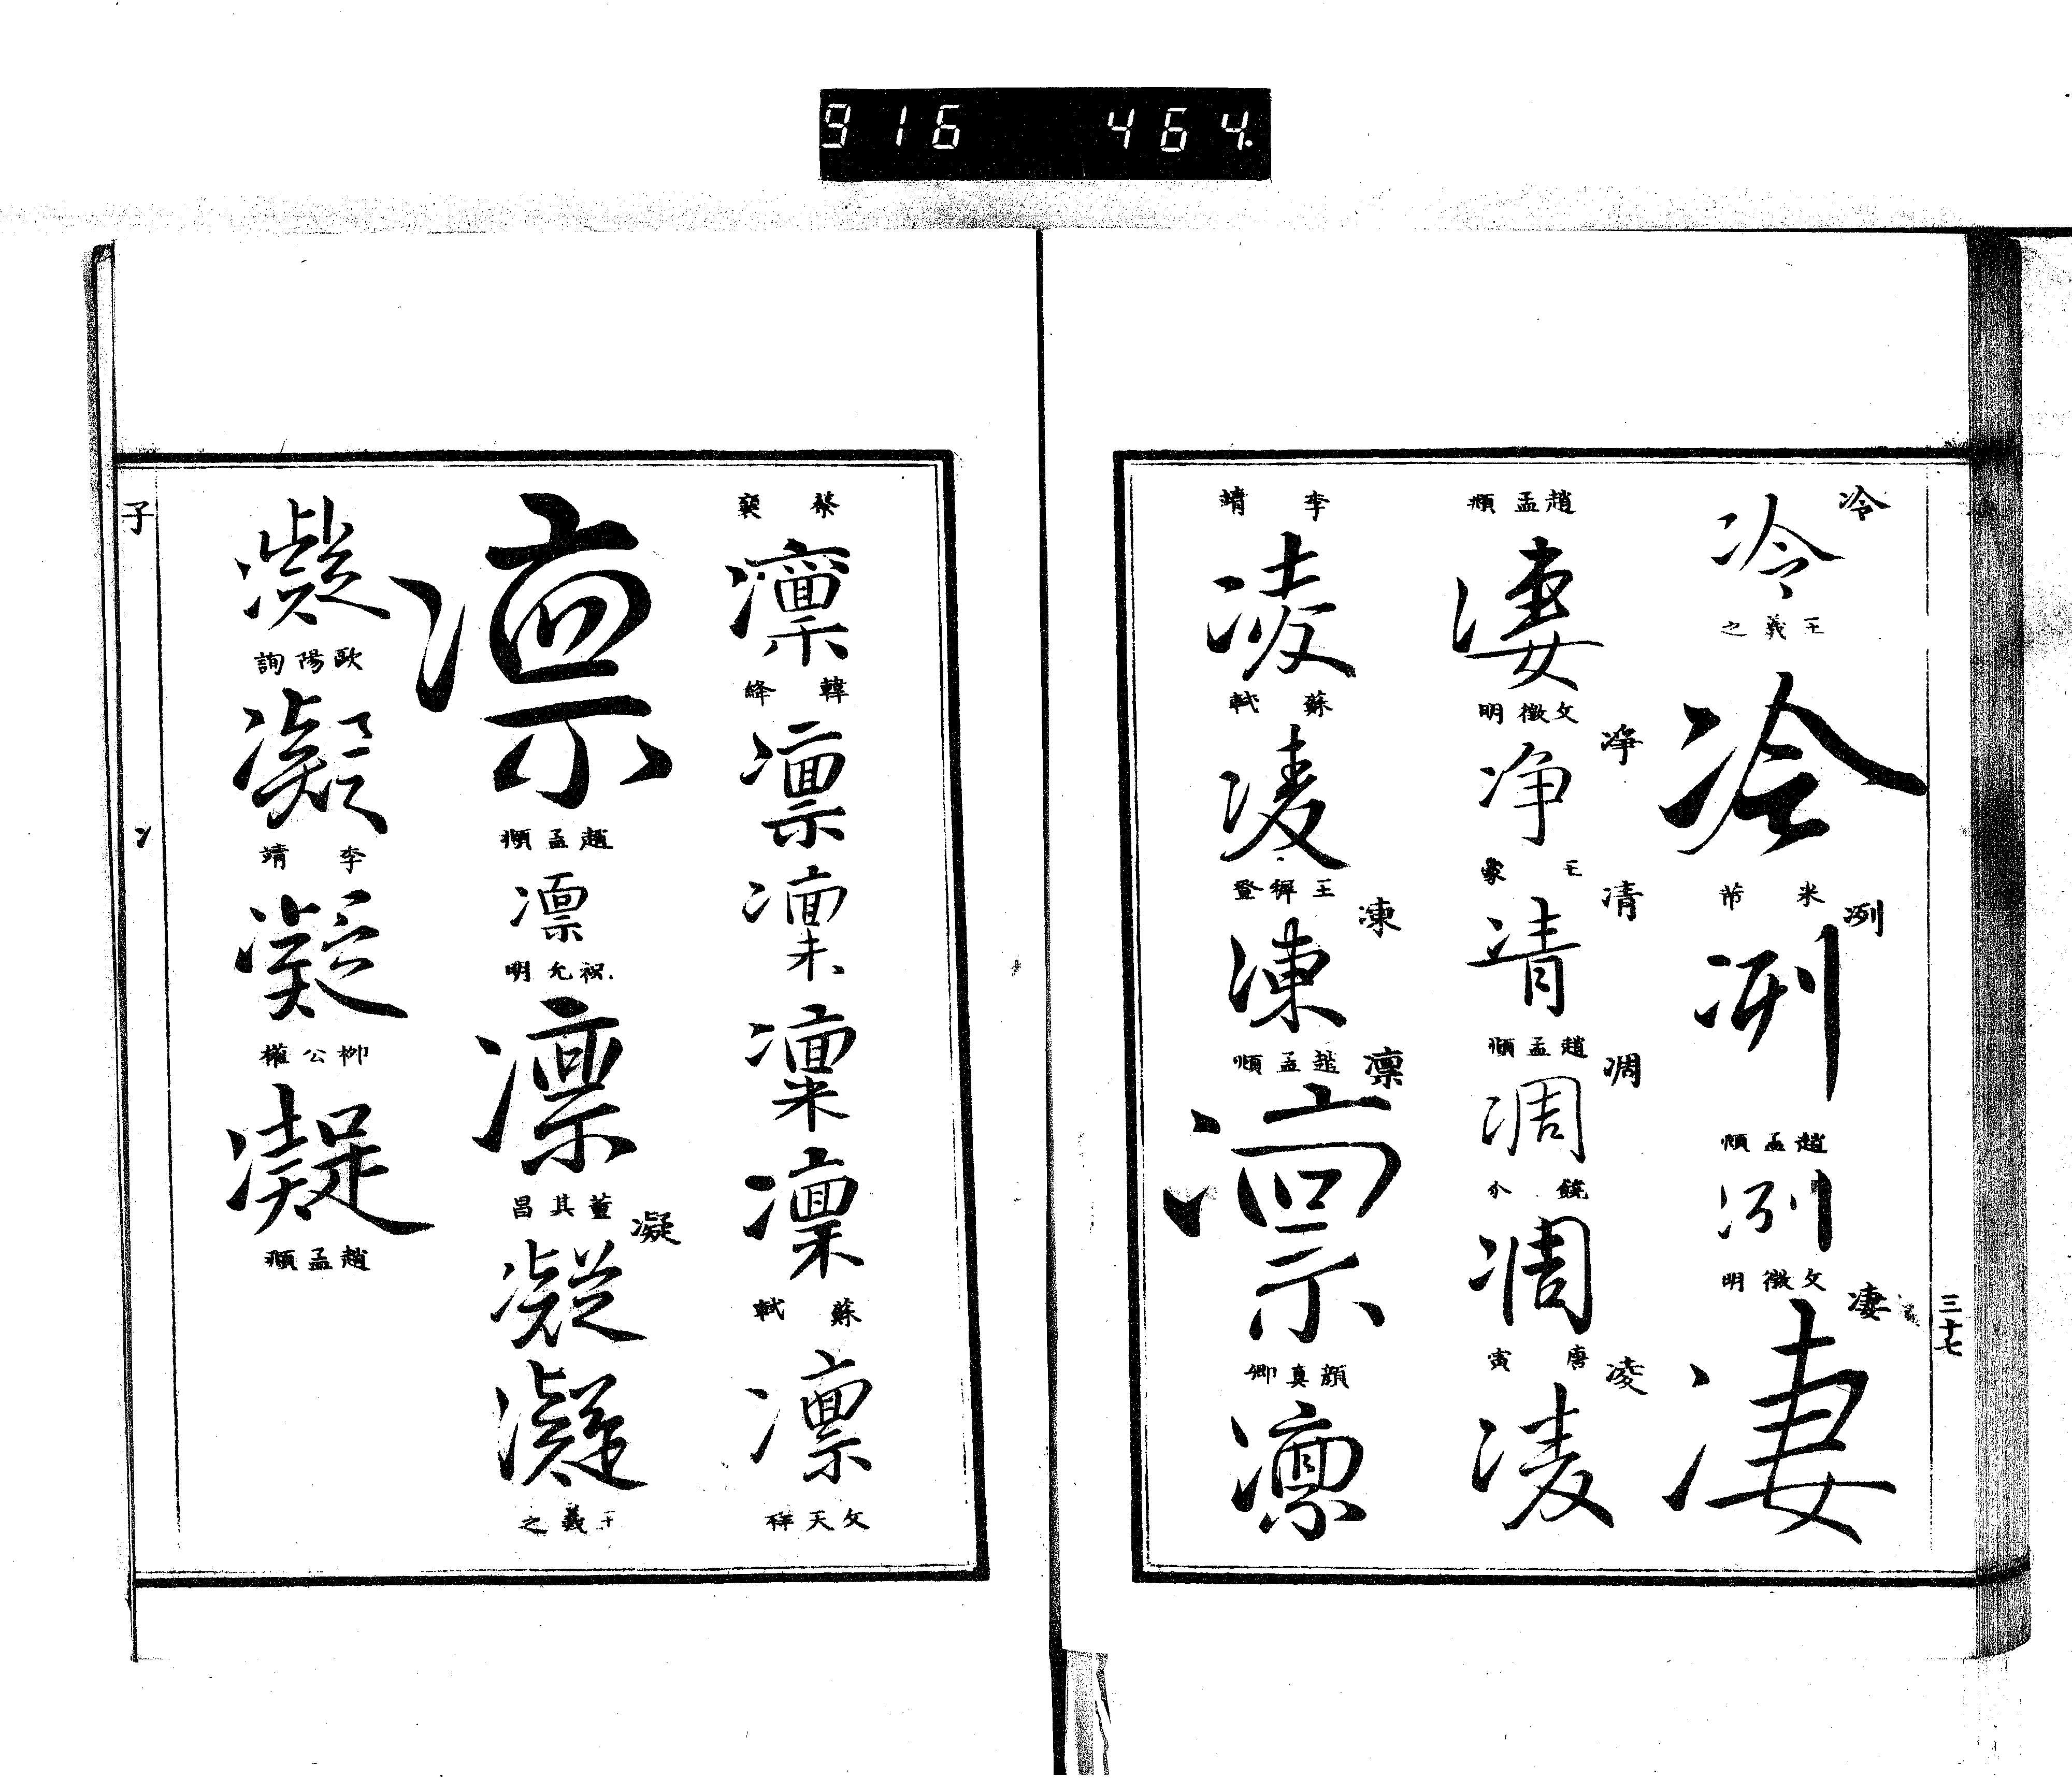 916 464.
冷
冷
王羲之
冷
米芾
冽
冽
趙孟頫
冽
文徵明
凄
凄
三十七
趙孟頫
凄
文徵明
净
净
王蒙
凊
凊
趙孟頫
凋
凋
饒介
凋
唐寅
凌
凌
李靖
凌
蘇軾
凌
王穉登
凍
凍
趙孟頫
凛
凛
顔真卿
凛
蔡襄
凛
韓絳
凛
凛
凛
凛
蘇軾
凛
文天祥
凛
趙孟頫
凛
祝允明
凛
董其昌
凝
凝
凝
王羲之
凝
歐陽詢
凝
李靖
凝
柳公權
凝
趙孟頫
子
冫